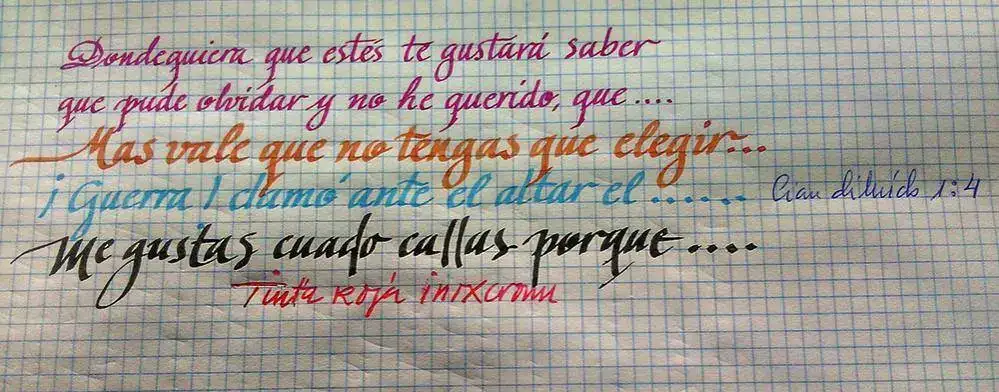 Dondequiera que estés te gustará saber
que pude olvidar y no he querido, que....
Mas vale que no tengas que elegir...
¡Guerra! clamó ante el altar el ...... Cian diluido 1:4
Me gustas cuado callas porque....
Tinta roja inoxcrom